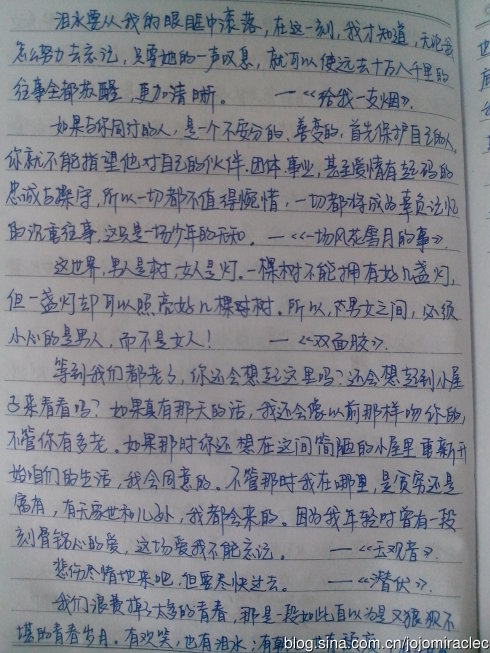 泪水要从我的眼眶中滚落，在这一刻，我才知道，无论我
怎么努力去忘记，只要她的一声叹息，就可以使远去十万八千里的
往事全都苏醒，更加清晰。 —《给我一支烟》.
如果与你同行的人，是一个不安分的、善变的，首先保护自己的人，
你就不能指望他对自己的伙伴、团体、事业，甚至爱情有起码的
忠诚与操守，所以一切都不值得惋惜，一切都将成为辜负记忆
的沉重往事，这只是一场少年的无知。 —《一场风花雪月的事》
这世界，男人是树，女人是灯.一棵树不能拥有好几盏灯，
但一盏灯却可以照亮好几棵树。所以，男女之间，必须
小心的是男人，而不是女人！ —《双面胶》.
等到我们都老了，你还会想起这里吗？还会想起到小屋
来看看吗？如果真有那天的话，我还会像以前那样吻你的，
不管你有多老。如果那时你还想在这间简陋的小屋里重新开
始咱们的生活，我会同意的。不管那时我在哪里，是贫穷还是
富有，有无家世和儿孙，我都会来的。因为我年轻时曾有一段
刻骨铭心的爱，这场爱我不能忘记。 —《玉观音》.
悲伤尽情地来吧，但要尽快过去。 —《潜伏》.
我们浪费掉了太多的青春，那是一段如此自以为是又狼狈不
堪的青春岁月。有欢笑，也有泪水；有朝
blog.sina.com.cn/jojomiraclec